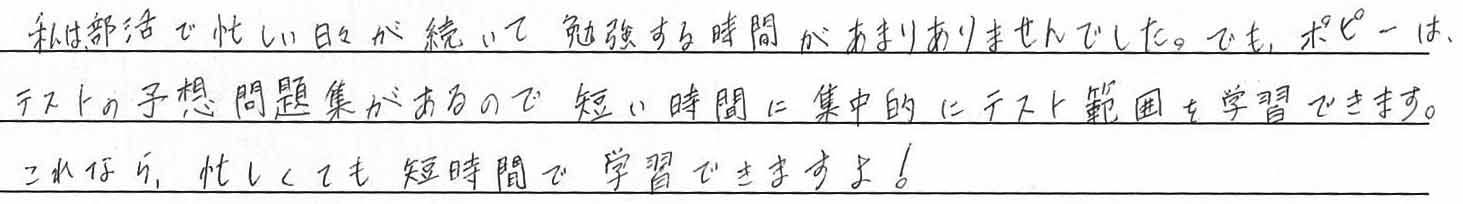 私は部活で忙しい日々が続いて勉強する時間があまりありませんでした。でも、ポピーは、
テストの予想問題集があるので短い時間に集中的にテスト範囲を学習できます。
これなら、忙しくても短時間で学習できますよ！